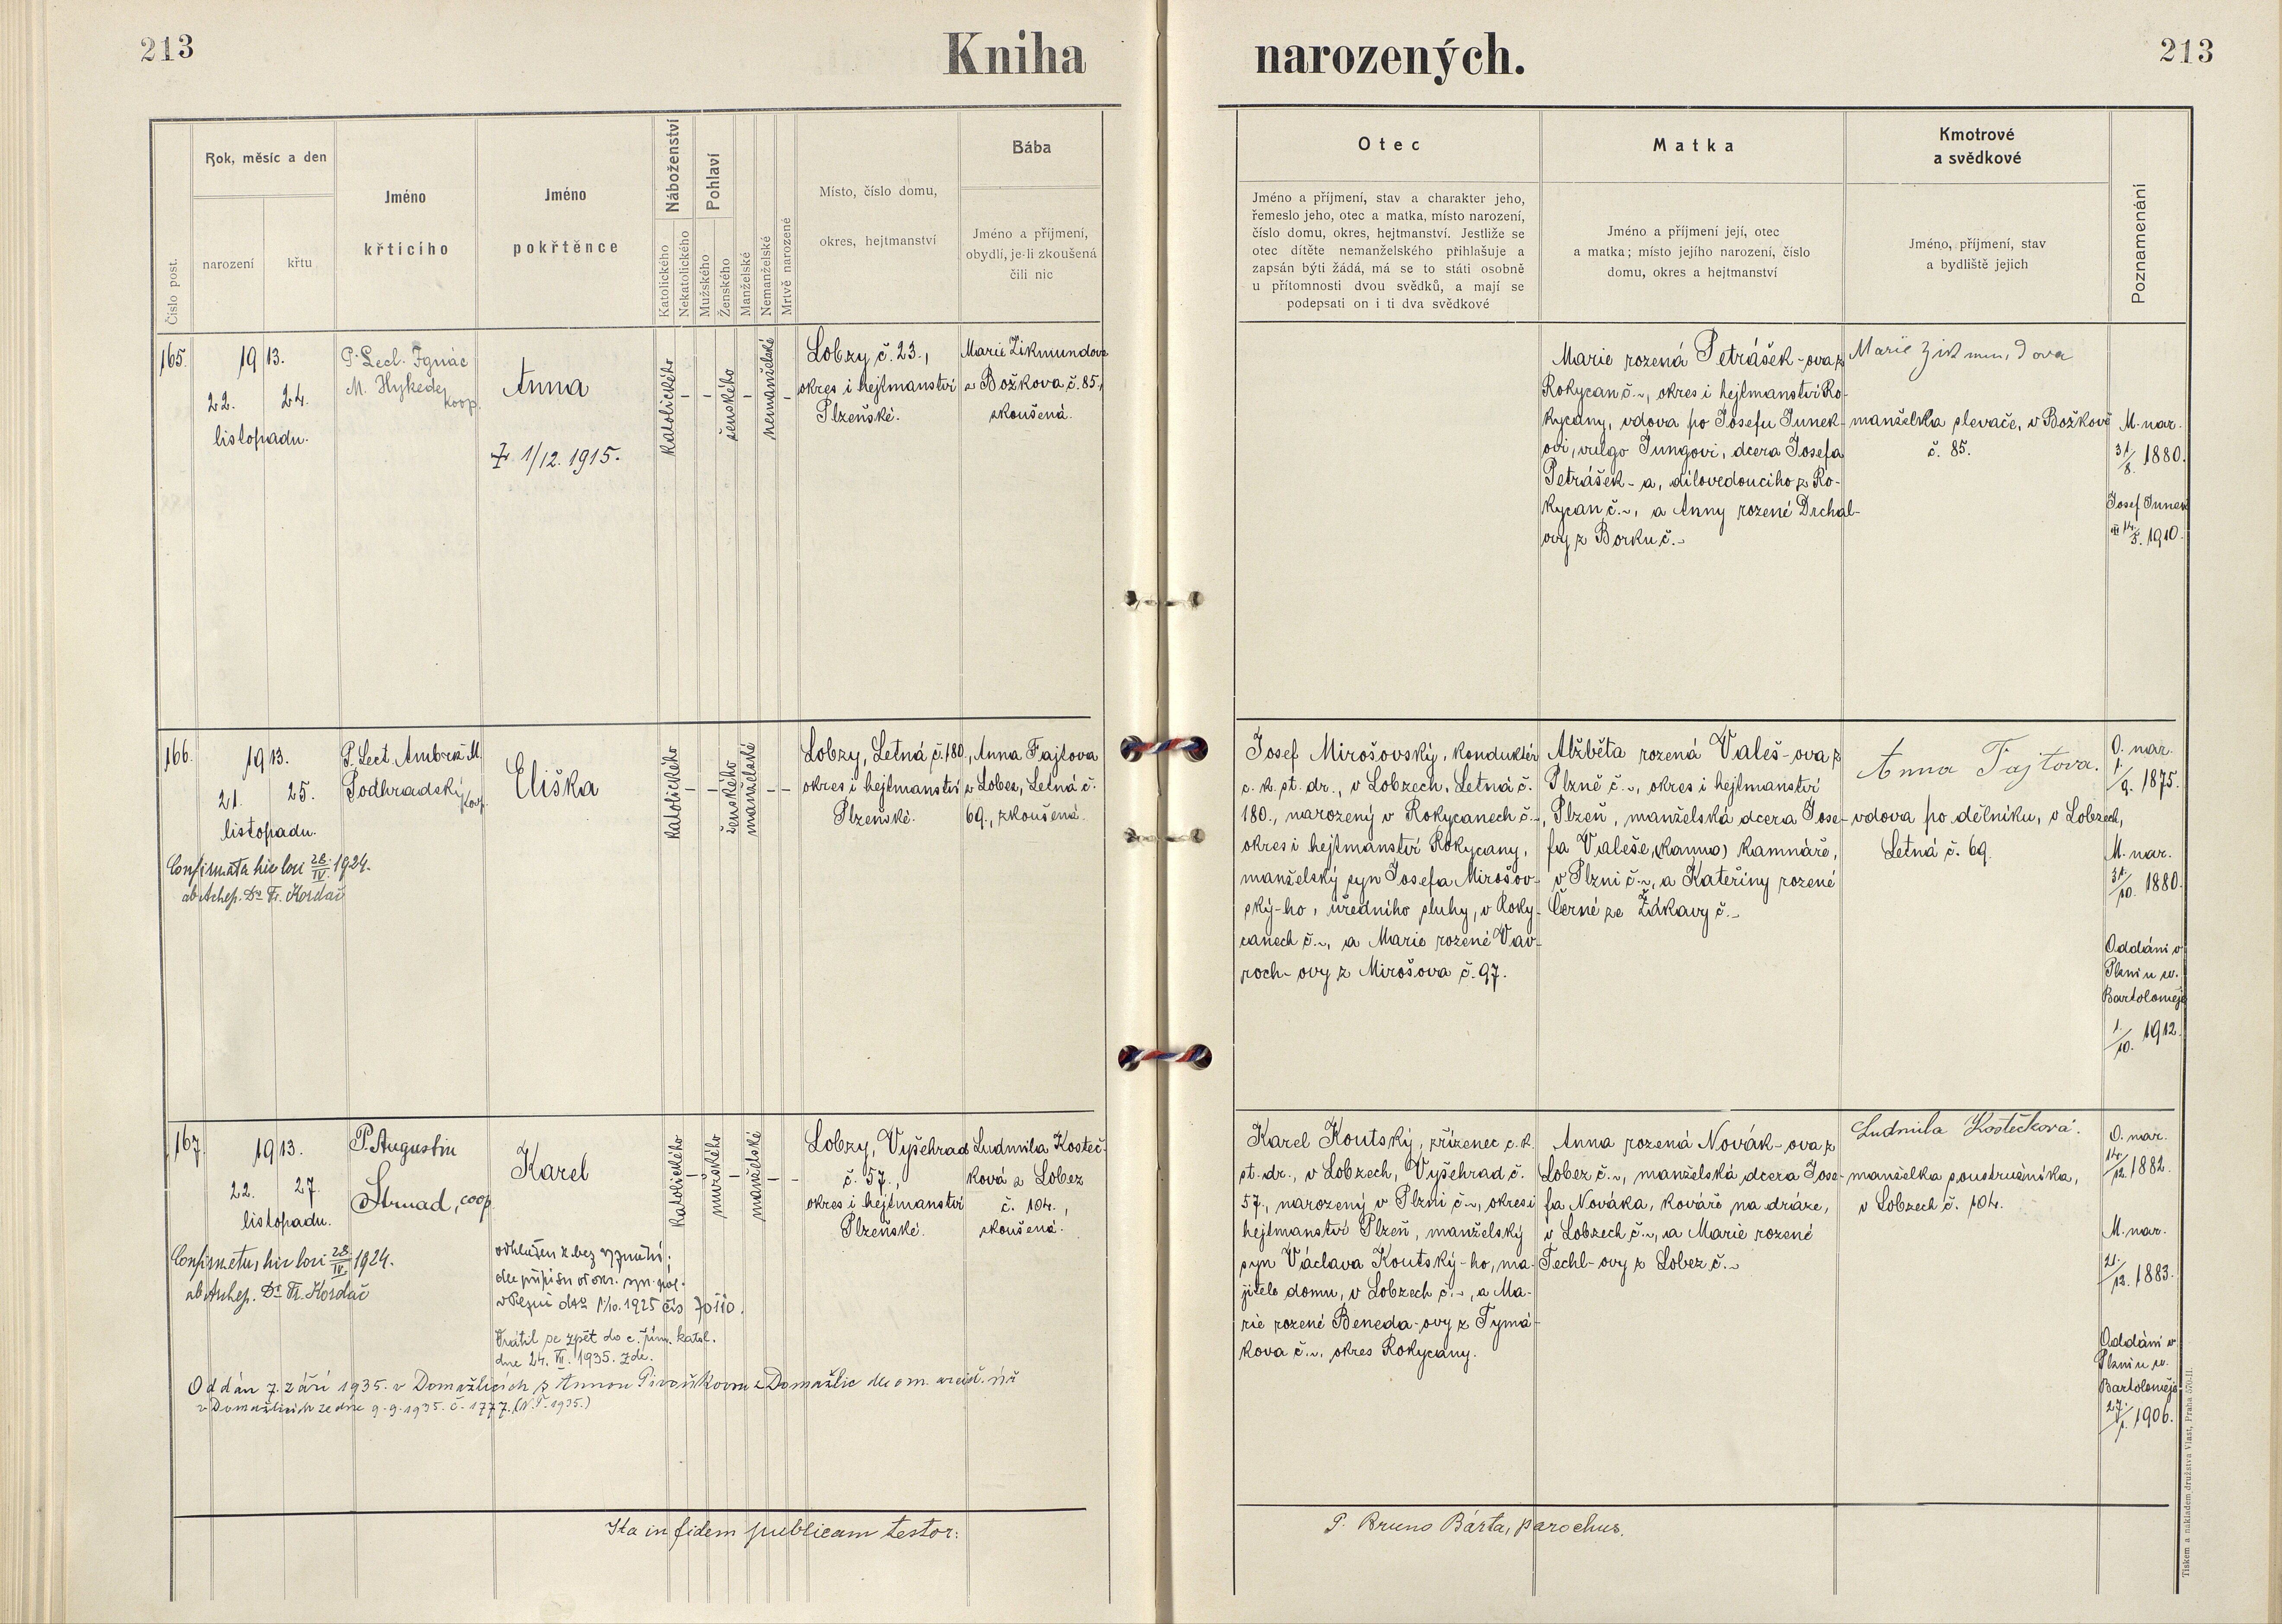 213
Kniha
narozených.
213
Číslo post.
Rok, měsíc a den
narození
křtu
Jméno
křticího
Jméno
pokřtěnce
Náboženství
Katolického
Nekatolického
Pohlaví
Mužského
Ženského
Manželské
Nemanželské
Mrtvě narozené
Místo, číslo domu,
okres, hejtmanství
Bába
Jméno a příjmení,
obydlí, je-li zkoušená
čili nic
Otec
Jméno a příjmení, stav a charakter jeho,
řemeslo jeho, otec a matka, místo narození,
číslo domu, okres, hejtmanství. Jestliže se
otec dítěte nemanželského přihlašuje a
zapsán býti žádá, má se to státi osobně
u přítomnosti dvou svědků, a mají se
podepsati on i ti dva svědkové
Matka
Jméno a příjmení její, otec
a matka; místo jejího narození, číslo
domu, okres a hejtmanství
Kmotrové
a svědkové
Jméno, příjmení, stav
a bydliště jejich
Poznamenání
165.
1913.
22. 24.
listopadu.
P. Lect. Ignác
M. Hykede
koop.
Anna
1/12. 1915.
katolického
-
-
ženského
-
nemanželské
-
Lobzy č. 23.,
okres i hejtmanství
Plzeňské.
Marie Zikmundova
z Božkova č. 85.,
zkoušená.
Marie rozená Petrášek-ova z
Rokycan č.~, okres i hejtmanství Ro-
kycany, vdova po Josefu Junek-
ovi, vulgo Jungovi, dcera Josefa
Petrášek-a, dílovedoucího z Ro-
kycan č.~, a Anny rozené Drchal-
ovy z Borku č.~
Marie Zikmundova
manželka plevače, v Božkově
č. 85.
M. nar.
31/8. 1880.
Josef Junek
14/3. 1910.
166.
1913.
21. 25.
listopadu.
P. Lect. Ambrož M.
Podhradský
koop.
Eliška
katolického
-
-
ženského
manželské
-
-
Lobzy, Letná č. 180.,
okres i hejtmanství
Plzeňské.
Anna Fajtova
z Lobez, Letná č.
69., zkoušená.
Confirmata hic loci 28./IV. 1924.
ab Achep. Dr. Fr. Kordač
Josef Mirošovský, konduktér
c. k. st. dr., v Lobzech, Letná č.
180., narozený v Rokycanech č.~,
okres i hejtmanství Rokycany,
manželský syn Josefa Mirošov-
ský-ho, úředního sluhy, v Roky-
canech č.~, a Marie rozené Vav-
roch-ovy z Mirošova č. 97.
Alžběta rozená Valeš-ova z
Plzně č.~, okres i hejtmanství
Plzeň, manželská dcera Jose-
fa Valeše, (kamna) kamnáře,
v Plzni č.~, a Kateřiny rozené
Černé ze Žákavy č.~
Anna Fajtova.
vdova po dělníku, v Lobzech,
Letná č. 69.
O. nar.
1./9. 1875.
M. nar.
31./10. 1880.
Oddáni v
Plzni u sv.
Bartoloměje
1./10. 1912.
167.
1913.
22. 27.
listopadu.
P. Augustin
Strnad, coop.
Karel
katolického
-
mužského
-
manželské
-
-
Lobzy, Vyšehrad
č. 57.,
okres i hejtmanství
Plzeňské.
Ludmila Kosteč-
ková z Lobez
č. 104.,
zkoušená.
Confirmatus hic loci 28./IV. 1924.
ab Achep. Dr. Fr. Kordač
odhlášen k bez vyznání;
dle přípisu okr. spr. pol.
v Plzni dto 1/10. 1925 čís 70110.
Vrátil se zpět do c. řím. katol.
dne 24. VII. 1935. zde.
Oddán 7. září 1935. v Domažlicích s Annou Pivoňkovou z Domažlic dle om. arcid. úř.
v Domažlicích ze dne 9.9.1935. č. 1777. (N. P. 1935.)
Karel Koutský, zřízenec c. k.
st. dr., v Lobzech, Vyšehrad č.
57., narozený v Plzni č.~, okres i
hejtmanství Plzeň, manželský
syn Václava Koutský-ho, ma-
jitele domu, v Lobzech č.~, a Ma-
rie rozené Beneda-ovy z Tymá-
kova č.~, okres Rokycany.
Anna rozená Novák-ova z
Lobez č.~, manželská dcera Jose-
fa Nováka, kováře na dráze,
v Lobzech č.~, a Marie rozené
Techl-ovy z Lobez č.~
Ludmila Kostečková.
manželka soustružníka,
v Lobzech č. 104.
O. nar.
14./12. 1882.
M. nar.
21./12. 1883.
Oddáni v
Plzni u sv.
Bartoloměje
27./1. 1906.
Ita in fidem publicam testor:
P. Bruno Bárta, parochus.
Tiskem a nákladem družstva Vlast, Praha 570-II.